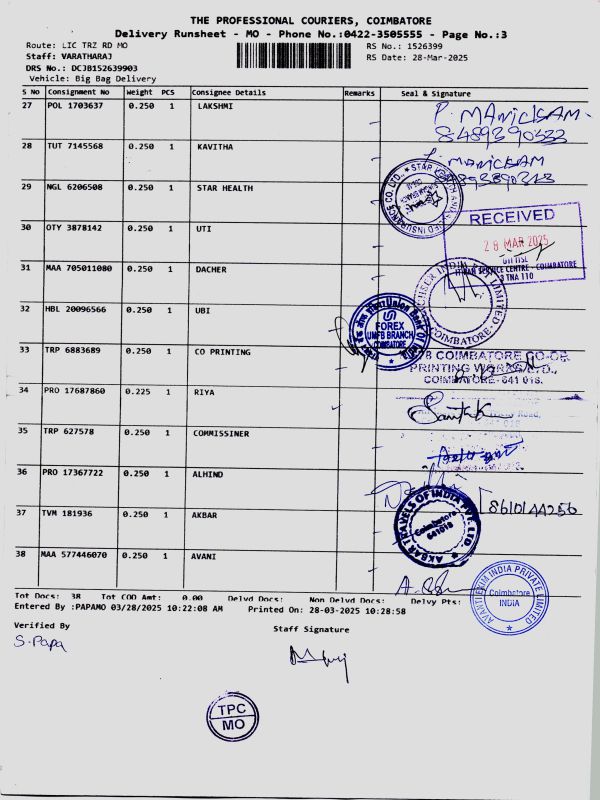 THE PROFESSIONAL COURIERS, COIMBATORE
Delivery Runsheet - MO - Phone No.:0422-3505555 - Page No.:3
Route: LIC TRZ RD MO RS No.: 1526399
Staff: VARATHARAJ RS Date: 28-Mar-2025
DRS No.: DCJB152639903
Vehicle: Big Bag Delivery
S No Consignment No Weight PCS Consignee Details Remarks Seal & Signature
27 POL 1703637 0.250 1 LAKSHMI P. MANICKAM
28 TUT 7145568 0.250 1 KAVITHA MANICKAM
29 NGL 6206508 0.250 1 STAR HEALTH
RECEIVED
28 MAR 2025
30 OTY 3878142 0.250 1 UTI
SERVICE CENTRE - COIMBATORE
TNA 110
31 MAA 705011080 0.250 1 DACHER
32 HBL 20096566 0.250 1 UBI
Union Bank Of
FOREX
UMFB BRANCH
COIMBATORE
COIMBATORE
33 TRP 6883689 0.250 1 CO PRINTING
COIMBATORE CO-OP.
PRINTING WORKS LTD.,
COIMBATORE - 641 018.
34 PRO 17687860 0.225 1 RIYA
35 TRP 627578 0.250 1 COMMISSINER
36 PRO 17367722 0.250 1 ALHIND
37 TVM 181936 0.250 1 AKBAR
AKBAR TRAVELS OF INDIA PVT. LTD.
Coimbatore
641018
38 MAA 577446070 0.250 1 AVANI
INDIA PRIVATE LIMITED
Coimbatore
INDIA
Tot Docs: 38 Tot COD Amt: 0.00 Delvd Docs: Non Delvd Docs: Delvy Pts:
Entered By :PAPAMO 03/28/2025 10:22:08 AM Printed On: 28-03-2025 10:28:58
Verified By Staff Signature
S. Papa
TPC
MO